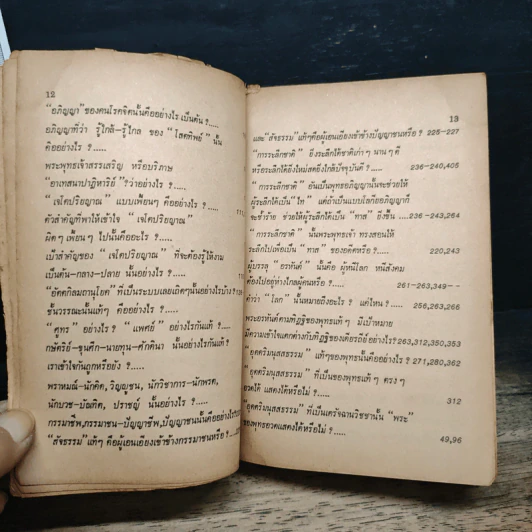 12
“อภิญญา” ของคนโรคจิตนั้นคืออย่างไร เป็นต้น ?.....
อภิญญาที่ว่า รู้ไกล้-รู้ไกล ของ “ โสตทิพย์ ” นั้น
คืออย่างไร ?.....
พระพุทธเจ้าสรรเสริญ หรือบริภาษ
“อาเทสนาปาฏิหาริย์ ” ? ว่าอย่างไร ?.....
“ เจโตปริยญาณ ” แบบเพี้ยนๆ คืออย่างไร ?.....
ตัวสำคัญที่พาให้เข้าใจ “ เจโตปริยญาณ ”
ผิดๆ เพี้ยนๆ ไปนั้นคืออะไร ?.....
เป้าสำคัญของ “ เจโตปริยญาณ ” ที่จะต้องรู้ให้งาม
เป็นต้น-กลาง-ปลาย นั้นอย่างไร ?.....
“อัตตกิลมถานุโยค” ที่เป็นระบบเลยเถิดๆ นั้นอย่างไรบ้าง ?
ชั้นวรรณะนั้นแท้ๆ คืออย่างไร ?.....
“ ศูทร ” อย่างไร ? “ แพศย์ ” อย่างไรกันแท้ ?....
กษัตริย์-ขุนศึก-นายทุน-ศักดินา นั้นอย่างไรกันแท้ ?
เราเข้าใจกันถูกหรือยัง ?.....
พราหมณ์-นักคิด, วิญญูชน, นักวิชาการ-นักพรต,
นักบวช-บัณฑิต, ปราชญ์ นั้นอย่างไร ?.....
กรรมาชีพ,กรรมาชน-ปัญญาชีพ,ปัญญาชนนั้นคืออย่างไร
“สัจธรรม” แท้ๆ คือผู้เอนเอียงเข้าข้างกรรมาชนหรือ ?.....
13
และ“ สัจธรรม” แท้ๆ คือผู้เอนเอียงเข้าข้างปัญญาชนหรือ ? 225-227
“ การระลึกชาติ ” ยิ่งระลึกได้ชาติเก่าๆ นานๆ ดี
หรือระลึกได้ยิ่งใหม่สดยิ่งใกล้ปัจจุบันดี ?..... 236-240,405
“ การระลึกชาติ ” อันเป็นพุทธอภิญญานั้นจะช่วยให้
ผู้ระลึกได้เป็น “ไท ” แต่ถ้าเป็นแบบโลกียอภิญญาก็
จะซ้ำร้าย ช่วยให้ผู้ระลึกได้เป็น “ ทาส ” ยิ่งขึ้น .... 236-243,264
“ การระลึกชาติ ” นั้นพระพุทธเจ้า ทรงสอนให้
ระลึกไปเพื่อเป็น “ ทาส ” ของอดีตหรือ ?..... 220,243
ผู้บรรลุ “ อรหันต์ ” นั้นคือ ผู้หนีโลก หนีสังคม
ต้องไปอยู่ห่างไกลผู้คนหรือ ?..... 261-263,349--
คำว่า “ โลก ” นั้นหมายถึงอะไร ? แค่ไหน ?..... 256,263,266
พระอรหันต์ตามทิฏฐิของพุทธแท้ๆ มีเป้าหมาย
มีความเข้าใจแตกต่างกับทิฏฐิของเดียรถีย์อย่างไร? 263,312,350,353
“อุตตริมนุสสธรรม ” แท้ๆ ของพุทธนั้นคืออย่างไร ? 271,280,362
“อุตตริมนุสสธรรม ” ที่เป็นของพุทธแท้ๆ ตรงๆ
อวดได้ แสดงได้หรือไม่ ?..... 312
“อุตตริมนุสสธรรม ” ที่เป็นเดรัจฉานวิชานั้น “ พระ”
ของพุทธอวดแสดงได้หรือไม่ ?..... 49,96